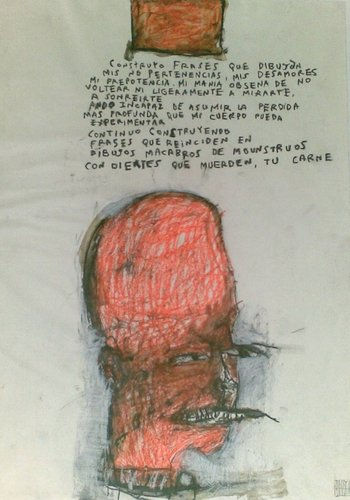 CONSTRUYO FRASES QUE DIBUJAN
MIS NO PERTENENCIAS, MIS DESAMORES
MI PREPOTENCIA. MI MANIA OBSENA DE NO
VOLTEAR NI LIGERAMENTE A MIRARTE,
A SONREIRTE
ANDO INCAPAZ DE ASUMIR LA PERDIDA
MAS PROFUNDA QUE MI CUERPO PUEDA
EXPERIMENTAR
CONTINUO CONSTRUYENDO
FRASES QUE REINCIDEN EN
DIBUJOS MACABROS DE MOUNSTRUOS
CON DIENTES QUE MUERDEN, TU CARNE